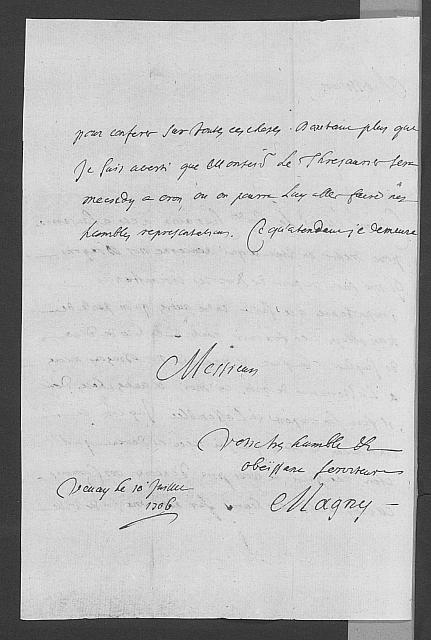 pour conferer sur toutes ces choses. D'autant plus que
Je suis averti que Monsieur le Thresaurier sera
mecredy a oron ou on pourra luy aller faire nos
humbles representations. Ce qu'atendant je demeure
Messieurs
Vostre tres humble &
obeissant serviteur
Magny
Vevay le 10 Juillet
1706